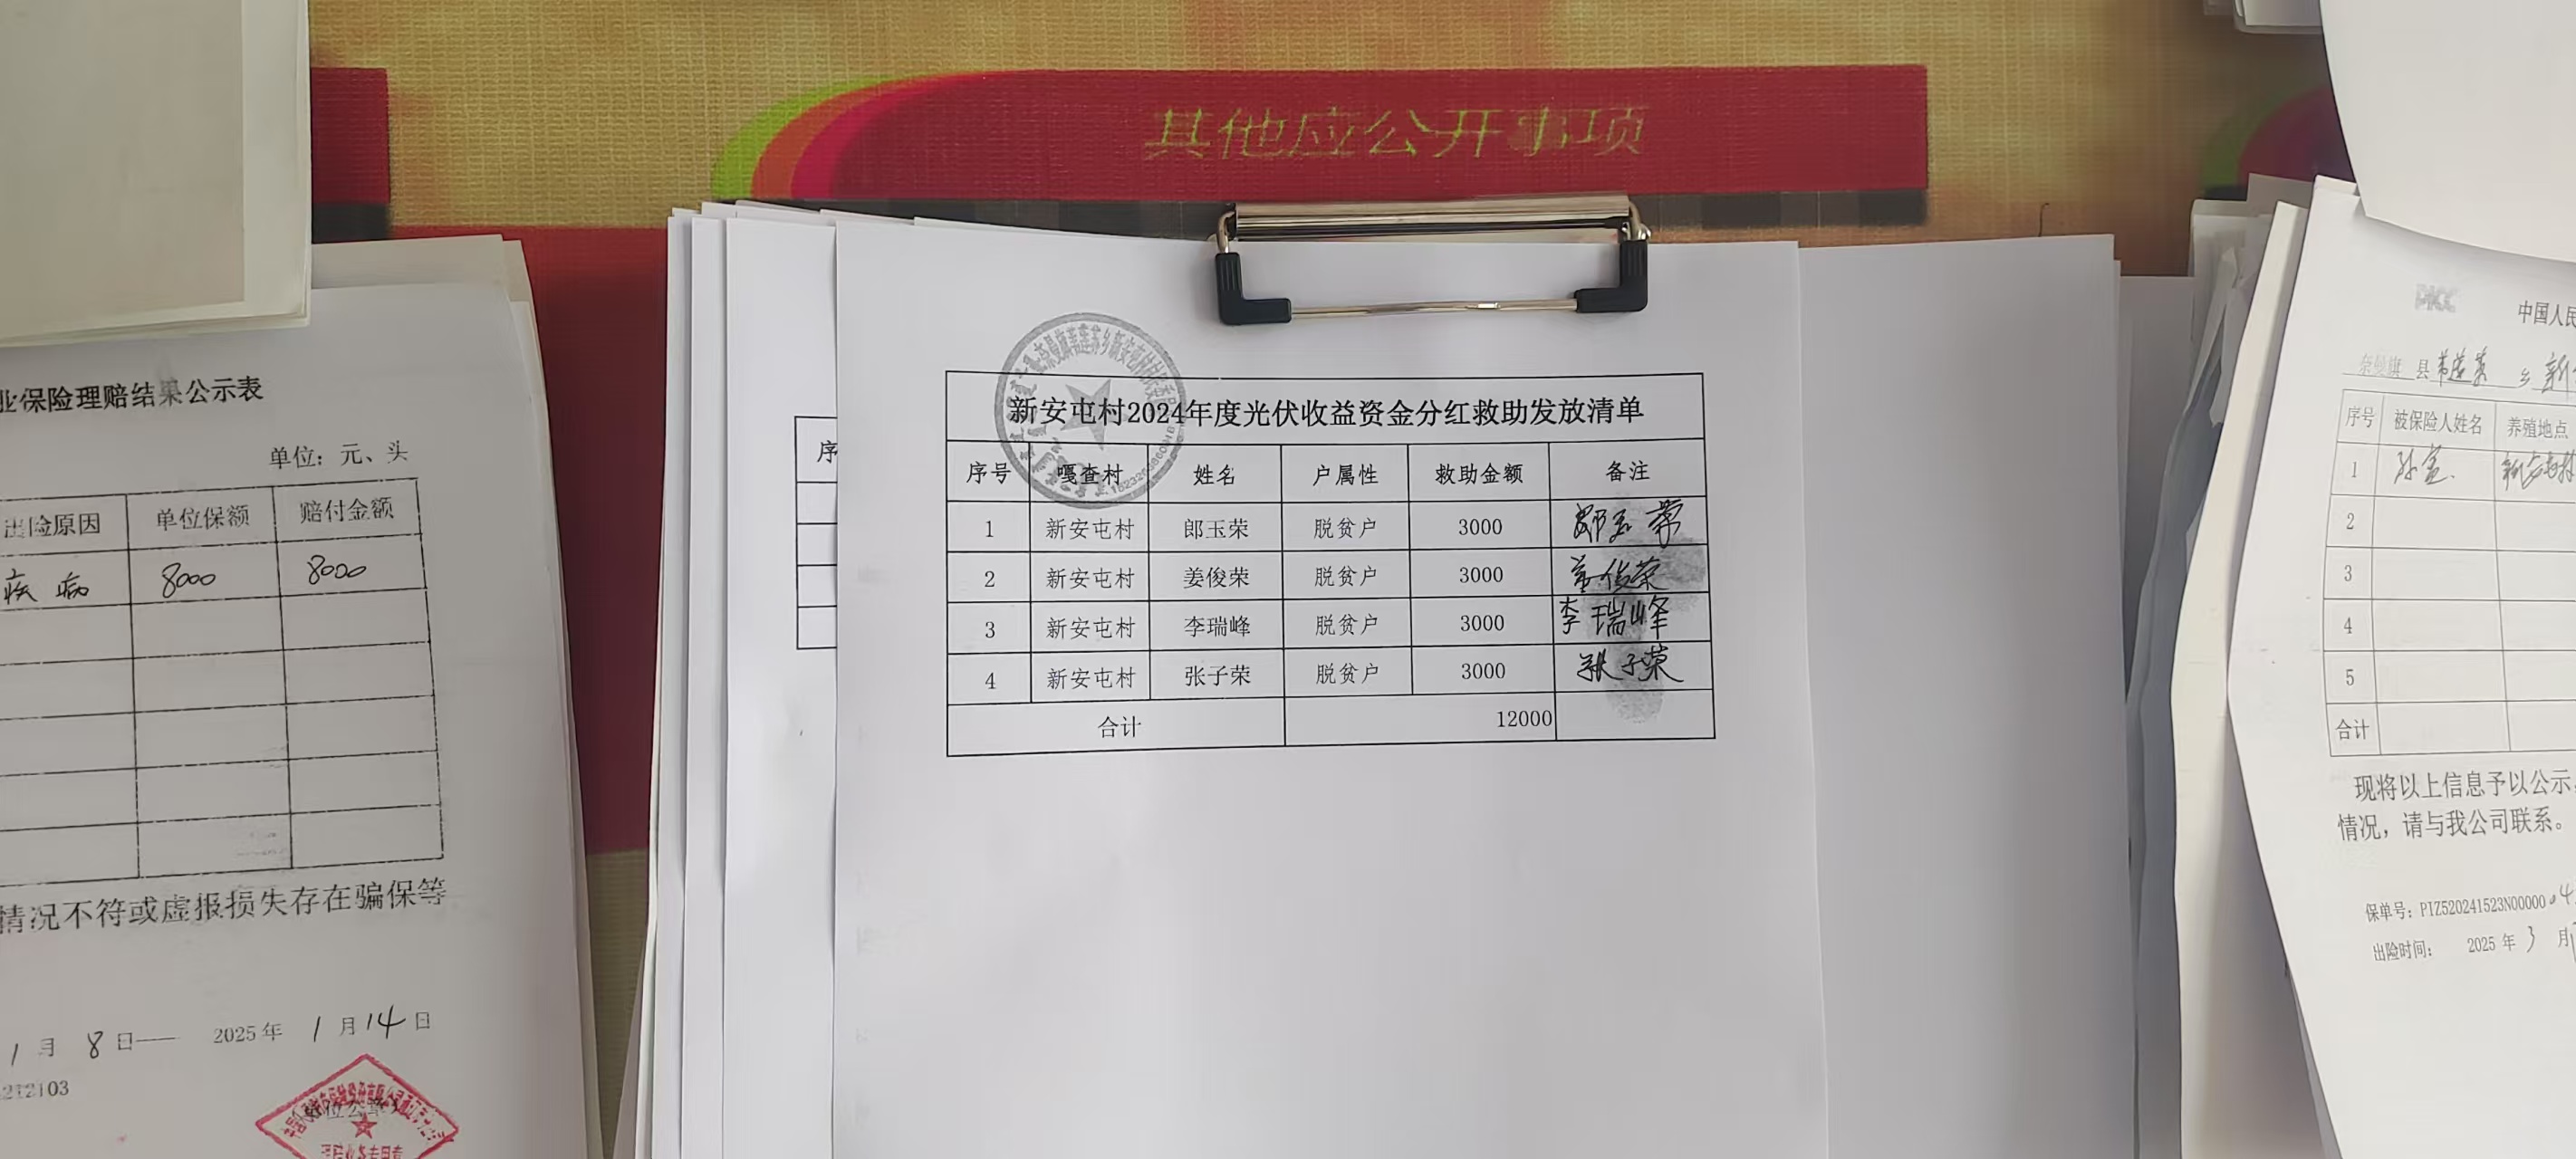 其他应公开事项
新安屯村2024年度光伏收益资金分红救助发放清单
序号 嘎查村 姓名 户属性 救助金额 备注
1 新安屯村 郎玉荣 脱贫户 3000 郎玉荣
2 新安屯村 姜俊荣 脱贫户 3000 姜俊荣
3 新安屯村 李瑞峰 脱贫户 3000 李瑞峰
4 新安屯村 张子荣 脱贫户 3000 张子荣
合计 12000
序
业保险理赔结果公示表
单位：元、头
出险原因 单位保额 赔付金额
疾病 8000 8000
情况不符或虚报损失存在骗保等
1月8日—— 2025年1月14日
212103
PICC
中国人民
奈曼旗 县 乡 新
序号 被保险人姓名 养殖地点
1
2
3
4
5
合计
现将以上信息予以公示
情况，请与我公司联系。
保单号：PIZ520241523N00000
出险时间： 2025年3月